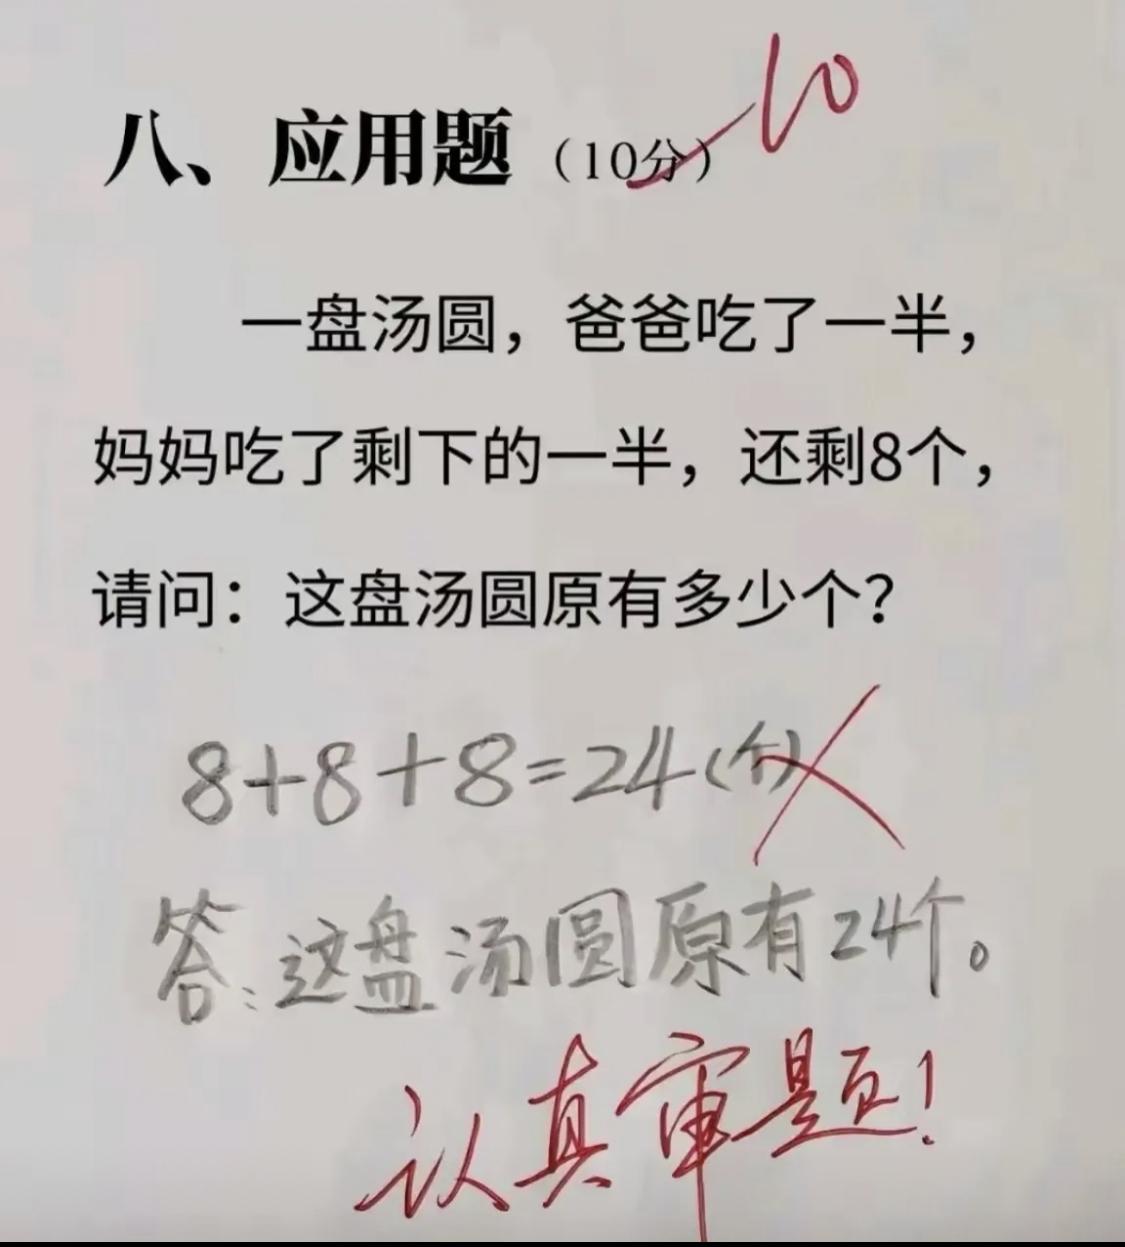 -10
八、应用题（10分）
一盘汤圆，爸爸吃了一半，
妈妈吃了剩下的一半，还剩8个，
请问：这盘汤圆原有多少个？
8+8+8=24(个)
答:这盘汤圆原有24个。
认真审题!